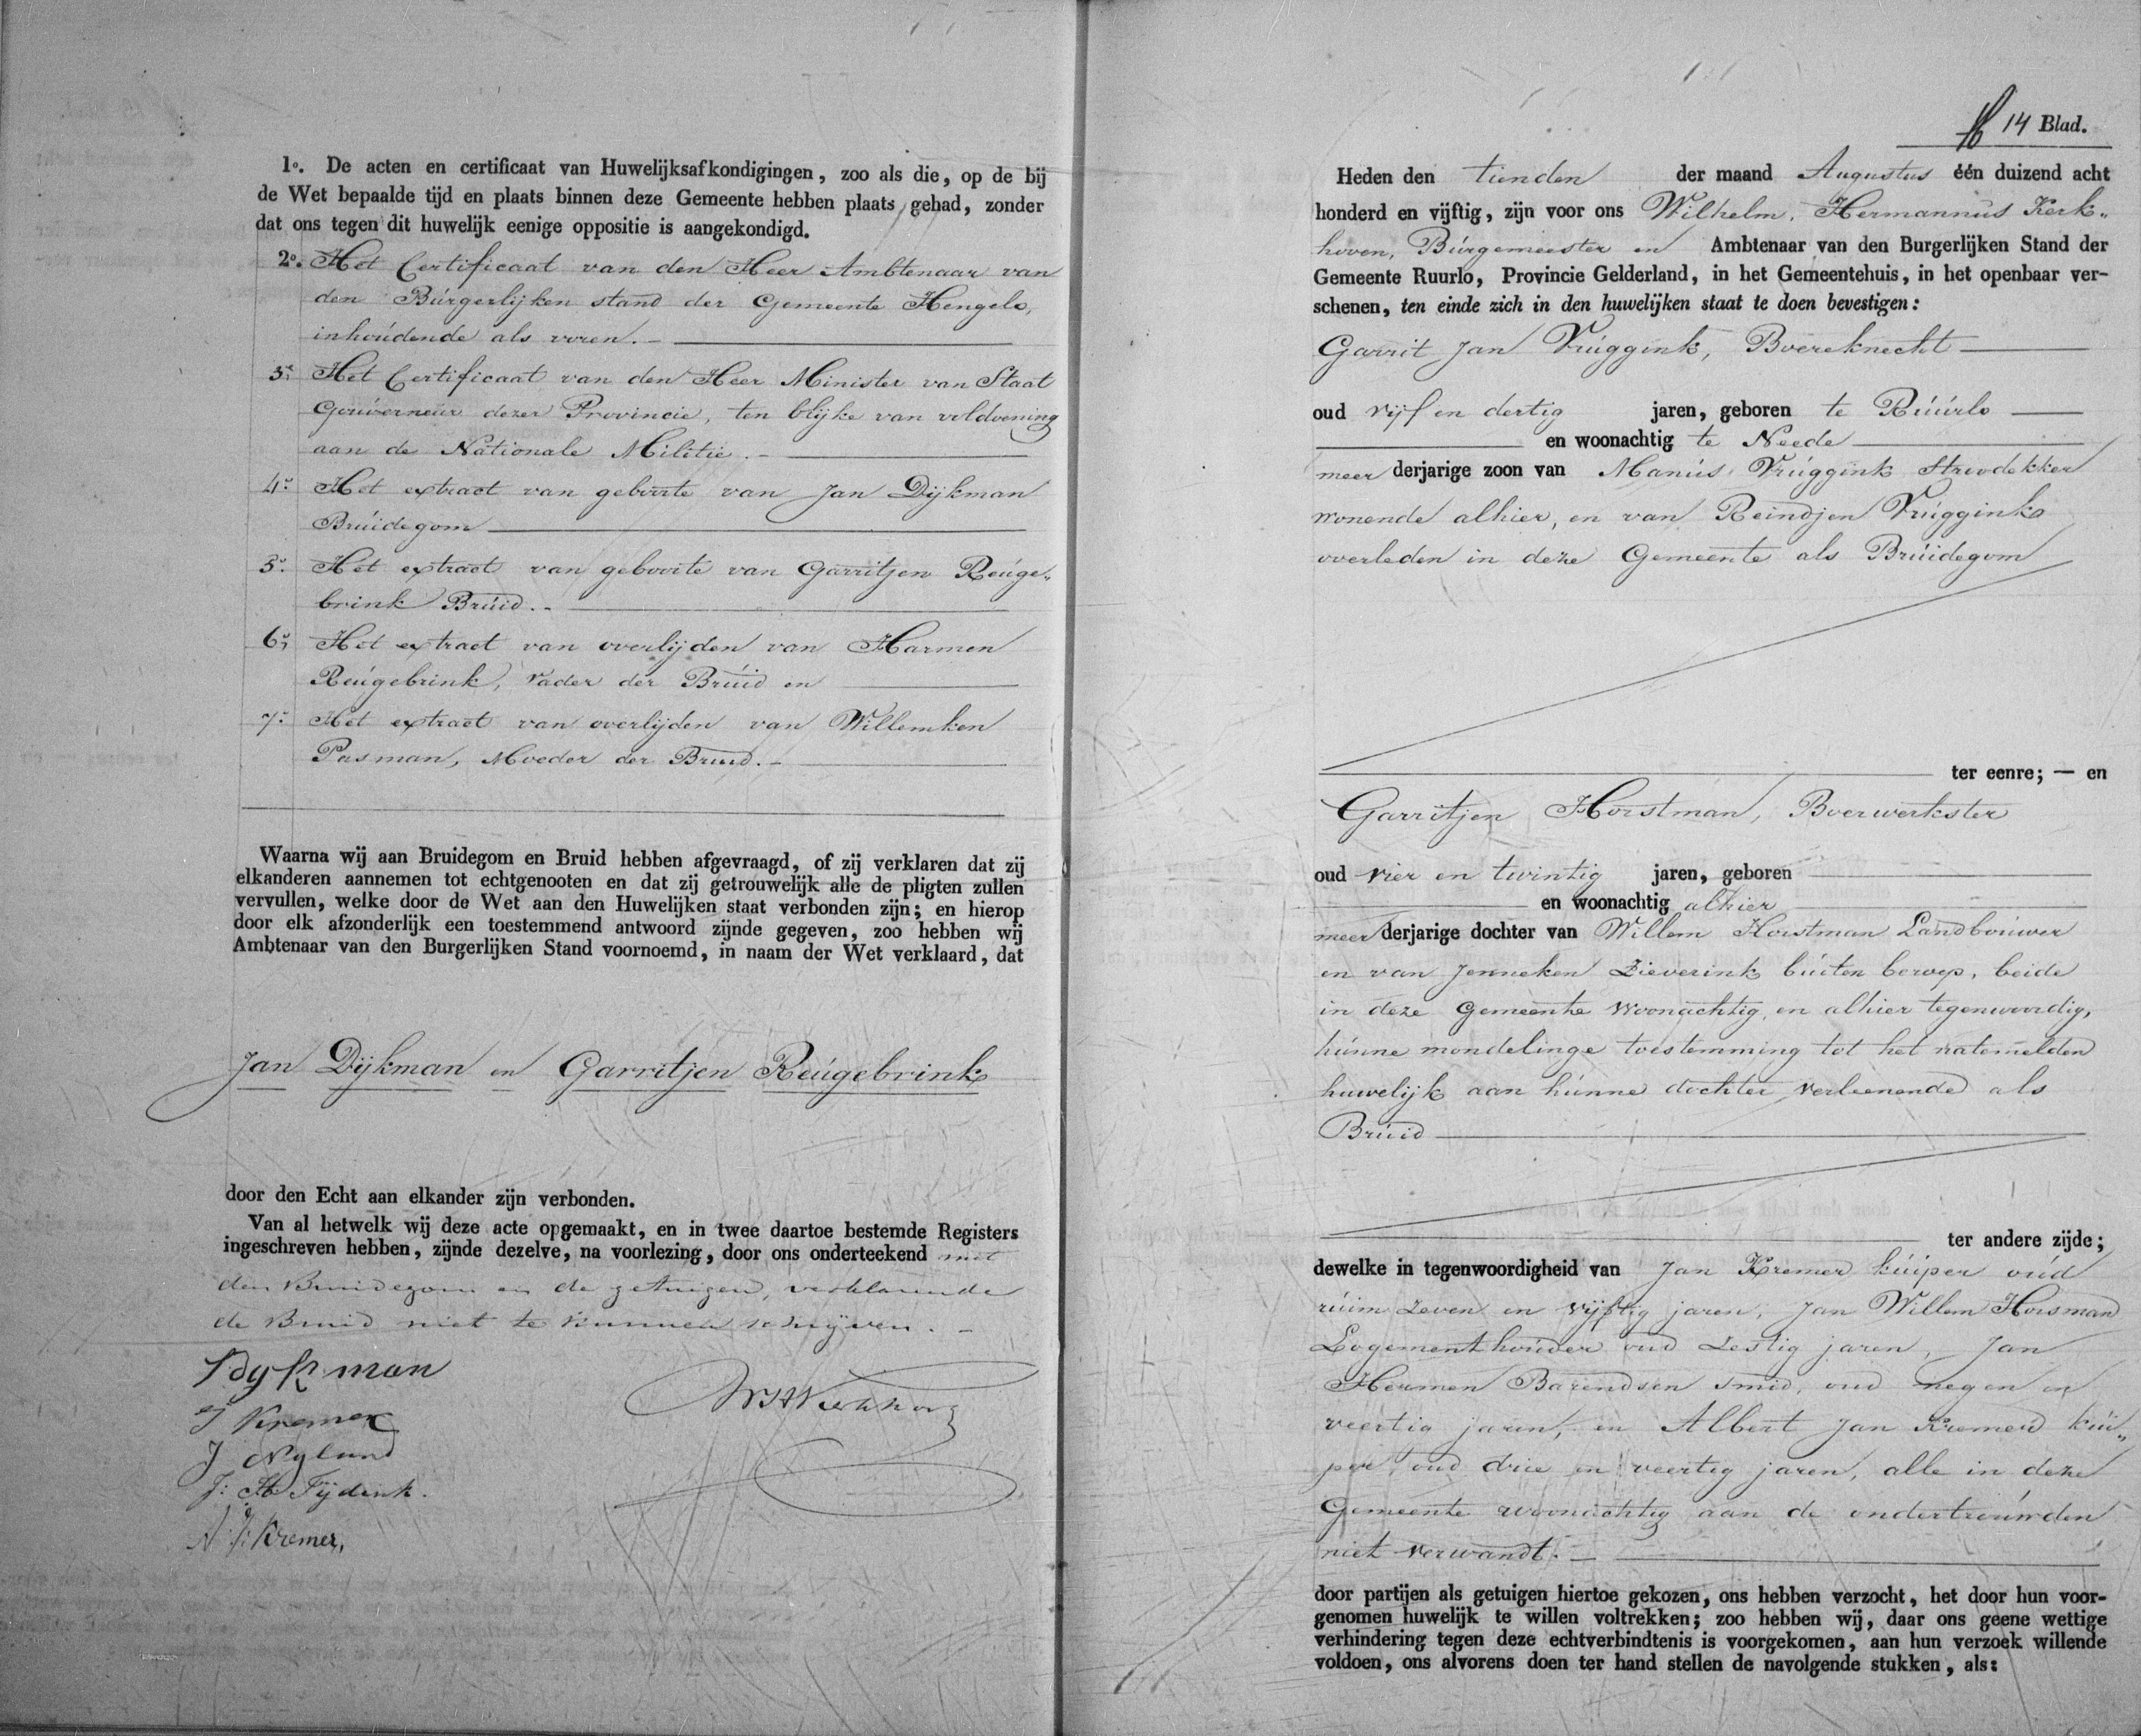 1º. De acten en certificaat van Huwelijksafkondigingen, zoo als die, op de bij
de Wet bepaalde tijd en plaats binnen deze Gemeente hebben plaats gehad, zonder
dat ons tegen dit huwelijk eenige oppositie is aangekondigd.
2º. Het Certificaat van den Heer Ambtenaar van
den Burgerlijken stand der Gemeente Hengelo,
inhoudende als voren. –
3º. Het Certificaat van den Heer Minister van Staat
Gouverneur dezer Provincie, ten blijke van voldoening
aan de Nationale Militie. –
4º. Het extract van geboorte van Jan Dijkman
Bruidegom
5º. Het extract van geboorte van Garritjen Reuge„
brink Bruid. –
6º. Het extract van overlijden van Harmen
Reugebrink, Vader der Bruid en
7º. Het extract van overlijden van Willemken
Pasman, Moeder der Bruid. –
Waarna wij aan Bruidegom en Bruid hebben afgevraagd, of zij verklaren dat zij
elkanderen aannemen tot echtgenooten en dat zij getrouwelijk alle de pligten zullen
vervullen, welke door de Wet aan den Huwelijken staat verbonden zijn; en hierop
door elk afzonderlijk een toestemmend antwoord zijnde gegeven, zoo hebben wij
Ambtenaar van den Burgerlijken Stand voornoemd, in naam der Wet verklaard, dat
Jan Dijkman en Garritjen Reugebrink
door den Echt aan elkander zijn verbonden.
Van al hetwelk wij deze acte opgemaakt, en in twee daartoe bestemde Registers
ingeschreven hebben, zijnde dezelve, na voorlezing, door ons onderteekend met
den Bruidegom en de getuigen, verklarende
de Bruid niet te kunnen schrijven. –
J Dykman
J Kremer
J Nyland
J: H Tijdink.
A: J: Kremer,
WHKerkhoven
14 Blad.
Heden den tienden der maand Augustus één duizend acht
honderd en vijftig, zijn voor ons Wilhelm, Hermannus Kerk„
hoven, Burgemeester en Ambtenaar van den Burgerlijken Stand der
Gemeente Ruurlo, Provincie Gelderland, in het Gemeentehuis, in het openbaar ver-
schenen, ten einde zich in den huwelijken staat te doen bevestigen:
Garrit Jan Vruggink, Boereknecht
oud vijf en dertig jaren, geboren te Ruurlo
en woonachtig te Neede
meer derjarige zoon van Manus Vruggink Stroodekker
wonende alhier, en van Reindjen Vruggink
overleden in deze Gemeente als Bruidegom
ter eenre; — en
Garritjen Horstman, Boerwerkster
oud vier en twintig jaren, geboren
en woonachtig alhier
meer derjarige dochter van Willem Horstman Landbouwer
en van Jenneken Zieverink buiten beroep, beide
in deze Gemeente woonachtig, en alhier tegenwoordig,
hunne mondelinge toestemming tot het natemelden
huwelijk aan hunne dochter verleenende als
Bruid
ter andere zijde;
dewelke in tegenwoordigheid van Jan Kremer kuiper oud
ruim Zeven en vijftig jaren, Jan Willem Horsman
Logementhouder oud Zestig jaren, Jan
Hermen Barendsen smid, oud negen en
veertig jaren, en Albert Jan Kremer kui„
per oud drie en veertig jaren, alle in deze
Gemeente woonachtig aan de ondertrouwden
niet verwandt. –
door partijen als getuigen hiertoe gekozen, ons hebben verzocht, het door hun voor-
genomen huwelijk te willen voltrekken; zoo hebben wij, daar ons geene wettige
verhindering tegen deze echtverbindtenis is voorgekomen, aan hun verzoek willende
voldoen, ons alvorens doen ter hand stellen de navolgende stukken, als: